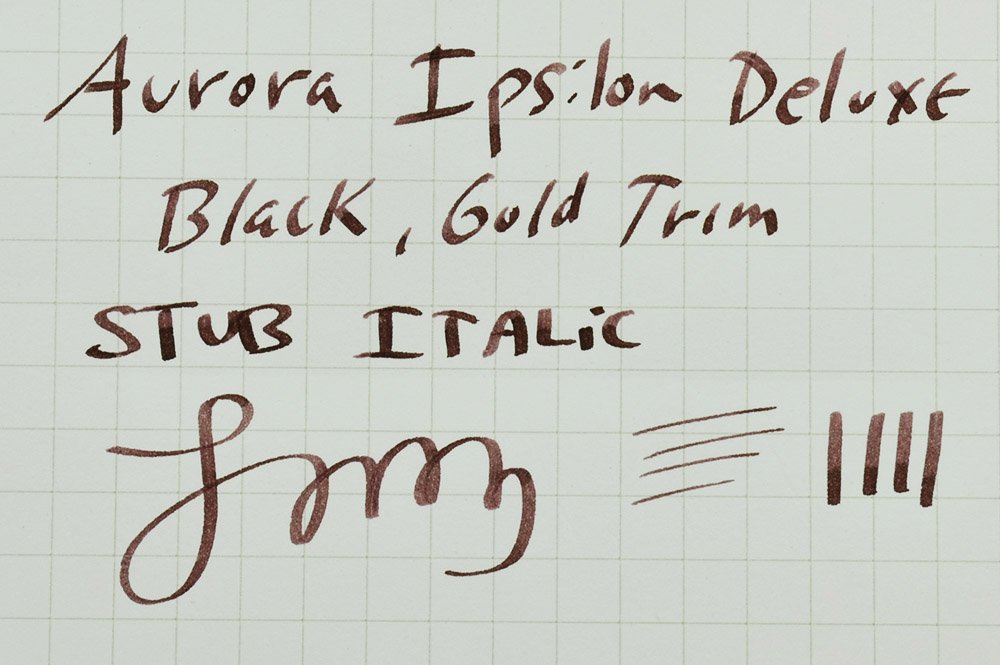 Aurora Ipsilon Deluxe
Black, Gold Trim
STUB ITALiC